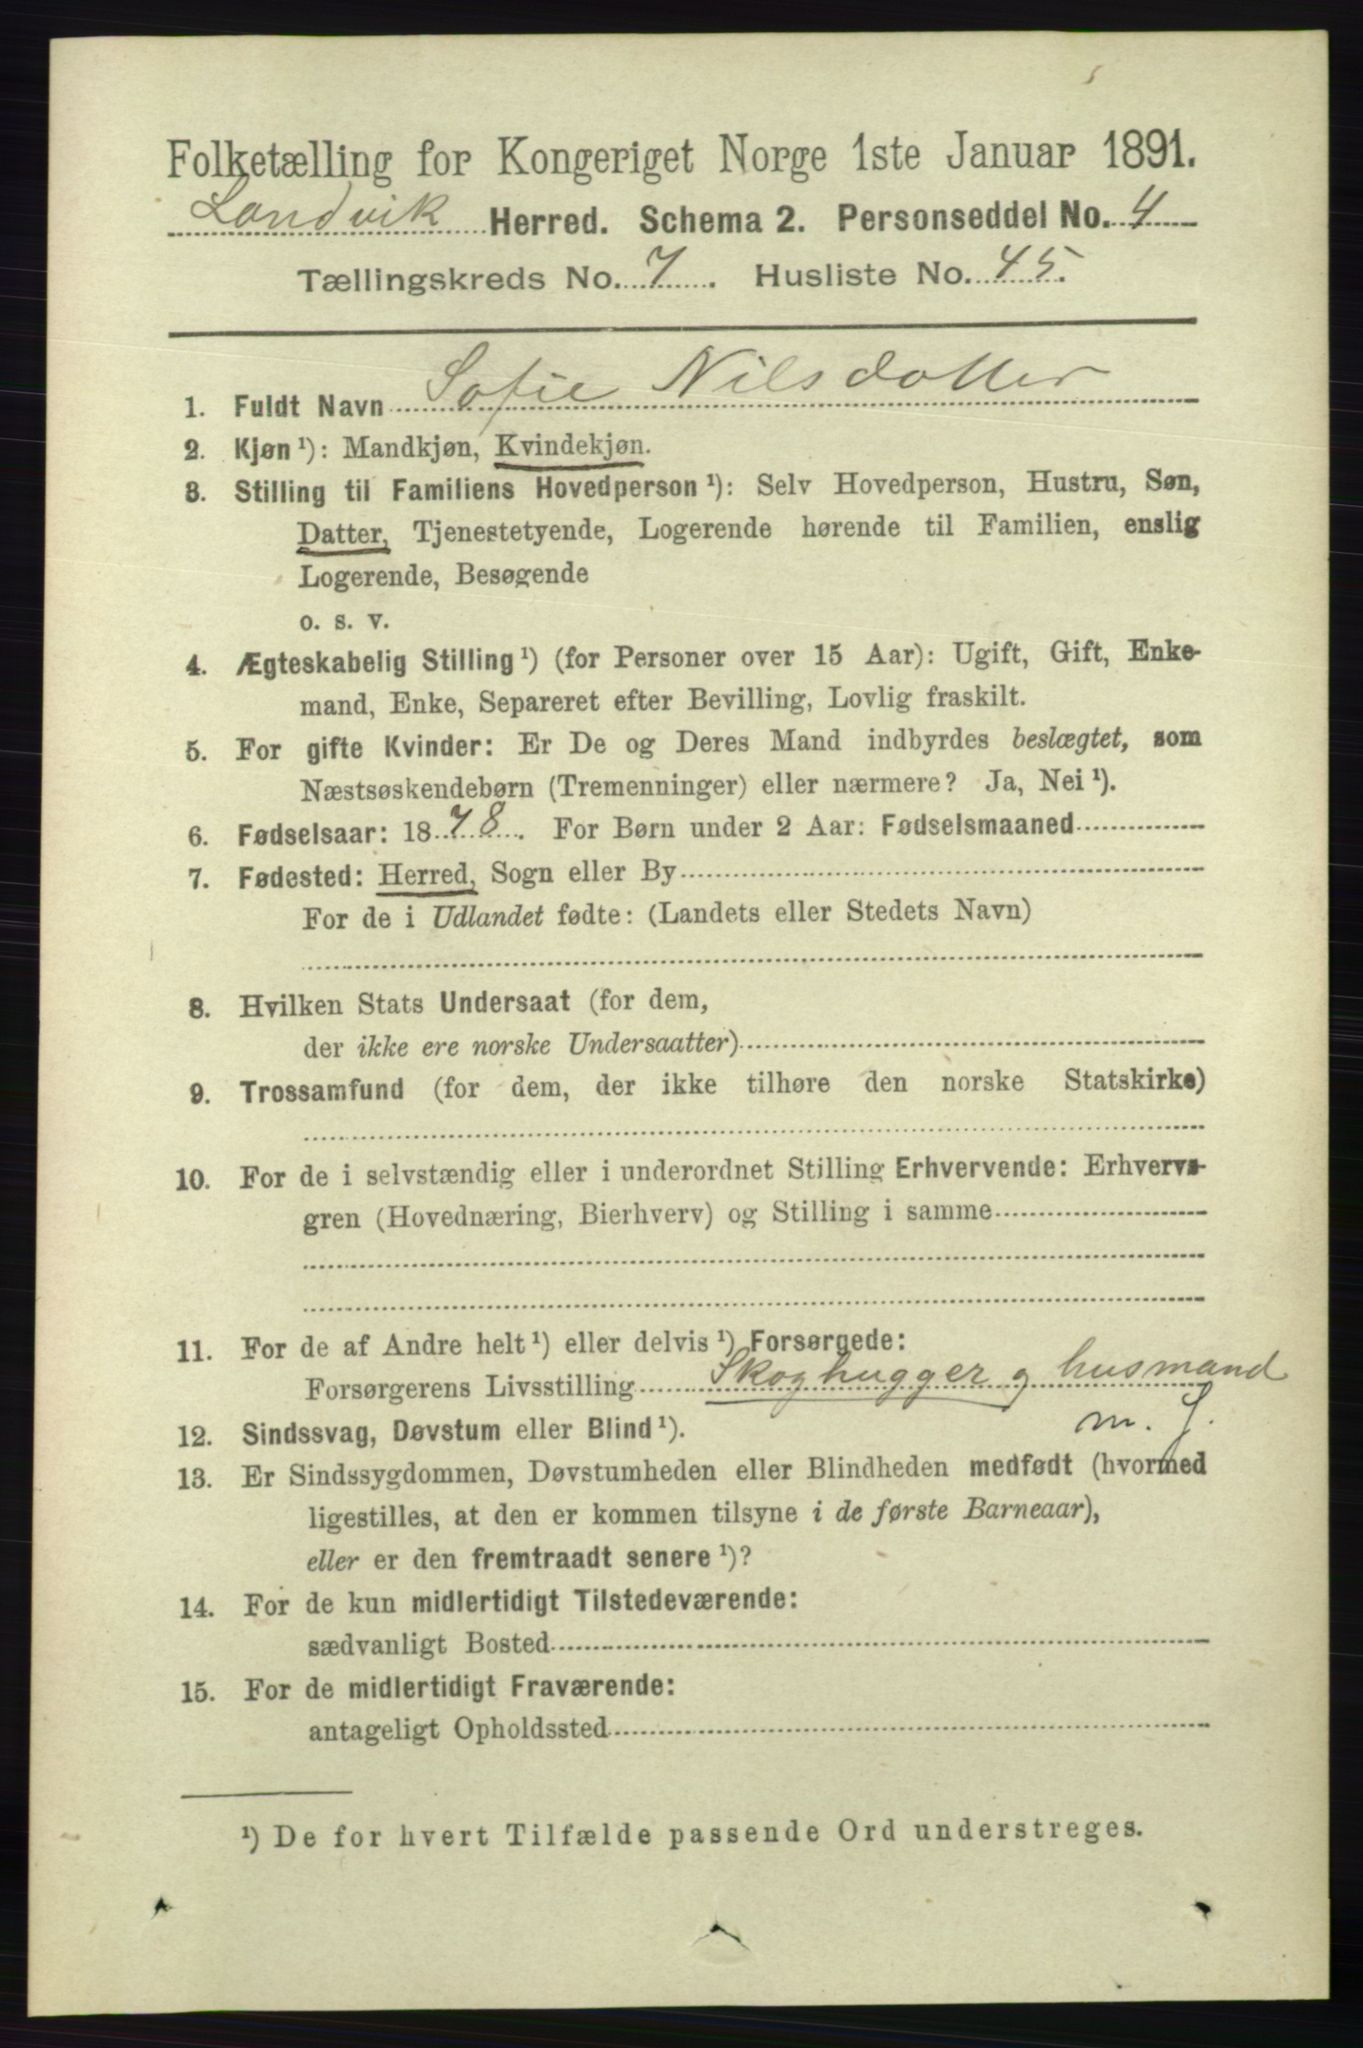 Folketælling for Kongeriget Norge 1ste Januar 1891.
Landvik Herred. Schema 2. Personseddel No. 4
Tællingskreds No. 7. Husliste No. 45.
1. Fuldt Navn Sofie Nilsdatter
2. Kjøn¹): Mandkjøn, Kvindekjøn.
3. Stilling til Familiens Hovedperson¹): Selv Hovedperson, Hustru, Søn,
Datter, Tjenestetyende, Logerende hørende til Familien, enslig
Logerende, Besøgende
o. s. v.
4. Ægteskabelig Stilling¹) (for Personer over 15 Aar): Ugift, Gift, Enke-
mand, Enke, Separeret efter Bevilling, Lovlig fraskilt.
5. For gifte Kvinder: Er De og Deres Mand indbyrdes beslægtet, som
Næstsøskendebørn (Tremenninger) eller nærmere? Ja, Nei¹).
6. Fødselsaar: 1878. For Børn under 2 Aar: Fødselsmaaned
7. Fødested: Herred, Sogn eller By
For de i Udlandet fødte: (Landets eller Stedets Navn)
8. Hvilken Stats Undersaat (for dem,
der ikke ere norske Undersaatter)
9. Trossamfund (for dem, der ikke tilhøre den norske Statskirke)
10. For de i selvstændig eller i underordnet Stilling Erhvervende: Erhvervs-
gren (Hovednæring, Bierhverv) og Stilling i samme
11. For de af Andre helt¹) eller delvis¹) Forsørgede:
Forsørgerens Livsstilling Skoghugger og husmand
m. J.
12. Sindssvag, Døvstum eller Blind¹).
13. Er Sindssygdommen, Døvstumheden eller Blindheden medfødt (hvormed
ligestilles, at den er kommen tilsyne i de første Barneaar),
eller er den fremtraadt senere¹)?
14. For de kun midlertidigt Tilstedeværende:
sædvanligt Bosted
15. For de midlertidigt Fraværende:
antageligt Opholdssted
¹) De for hvert Tilfælde passende Ord understreges.